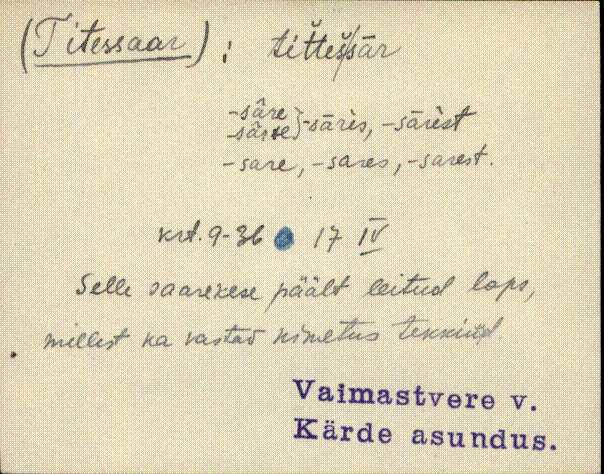 (Titessaar) : tĭt̆teš̆/sār
-sâre } -sārès, -sārèst
-sârre
-sare, -sares, -sarest.
krt. 9-36 17 IV
Selle saarekese päält leitud laps,
millest ka vastav nimetus tekkind.
Vaimastvere v.
Kärde asundus.